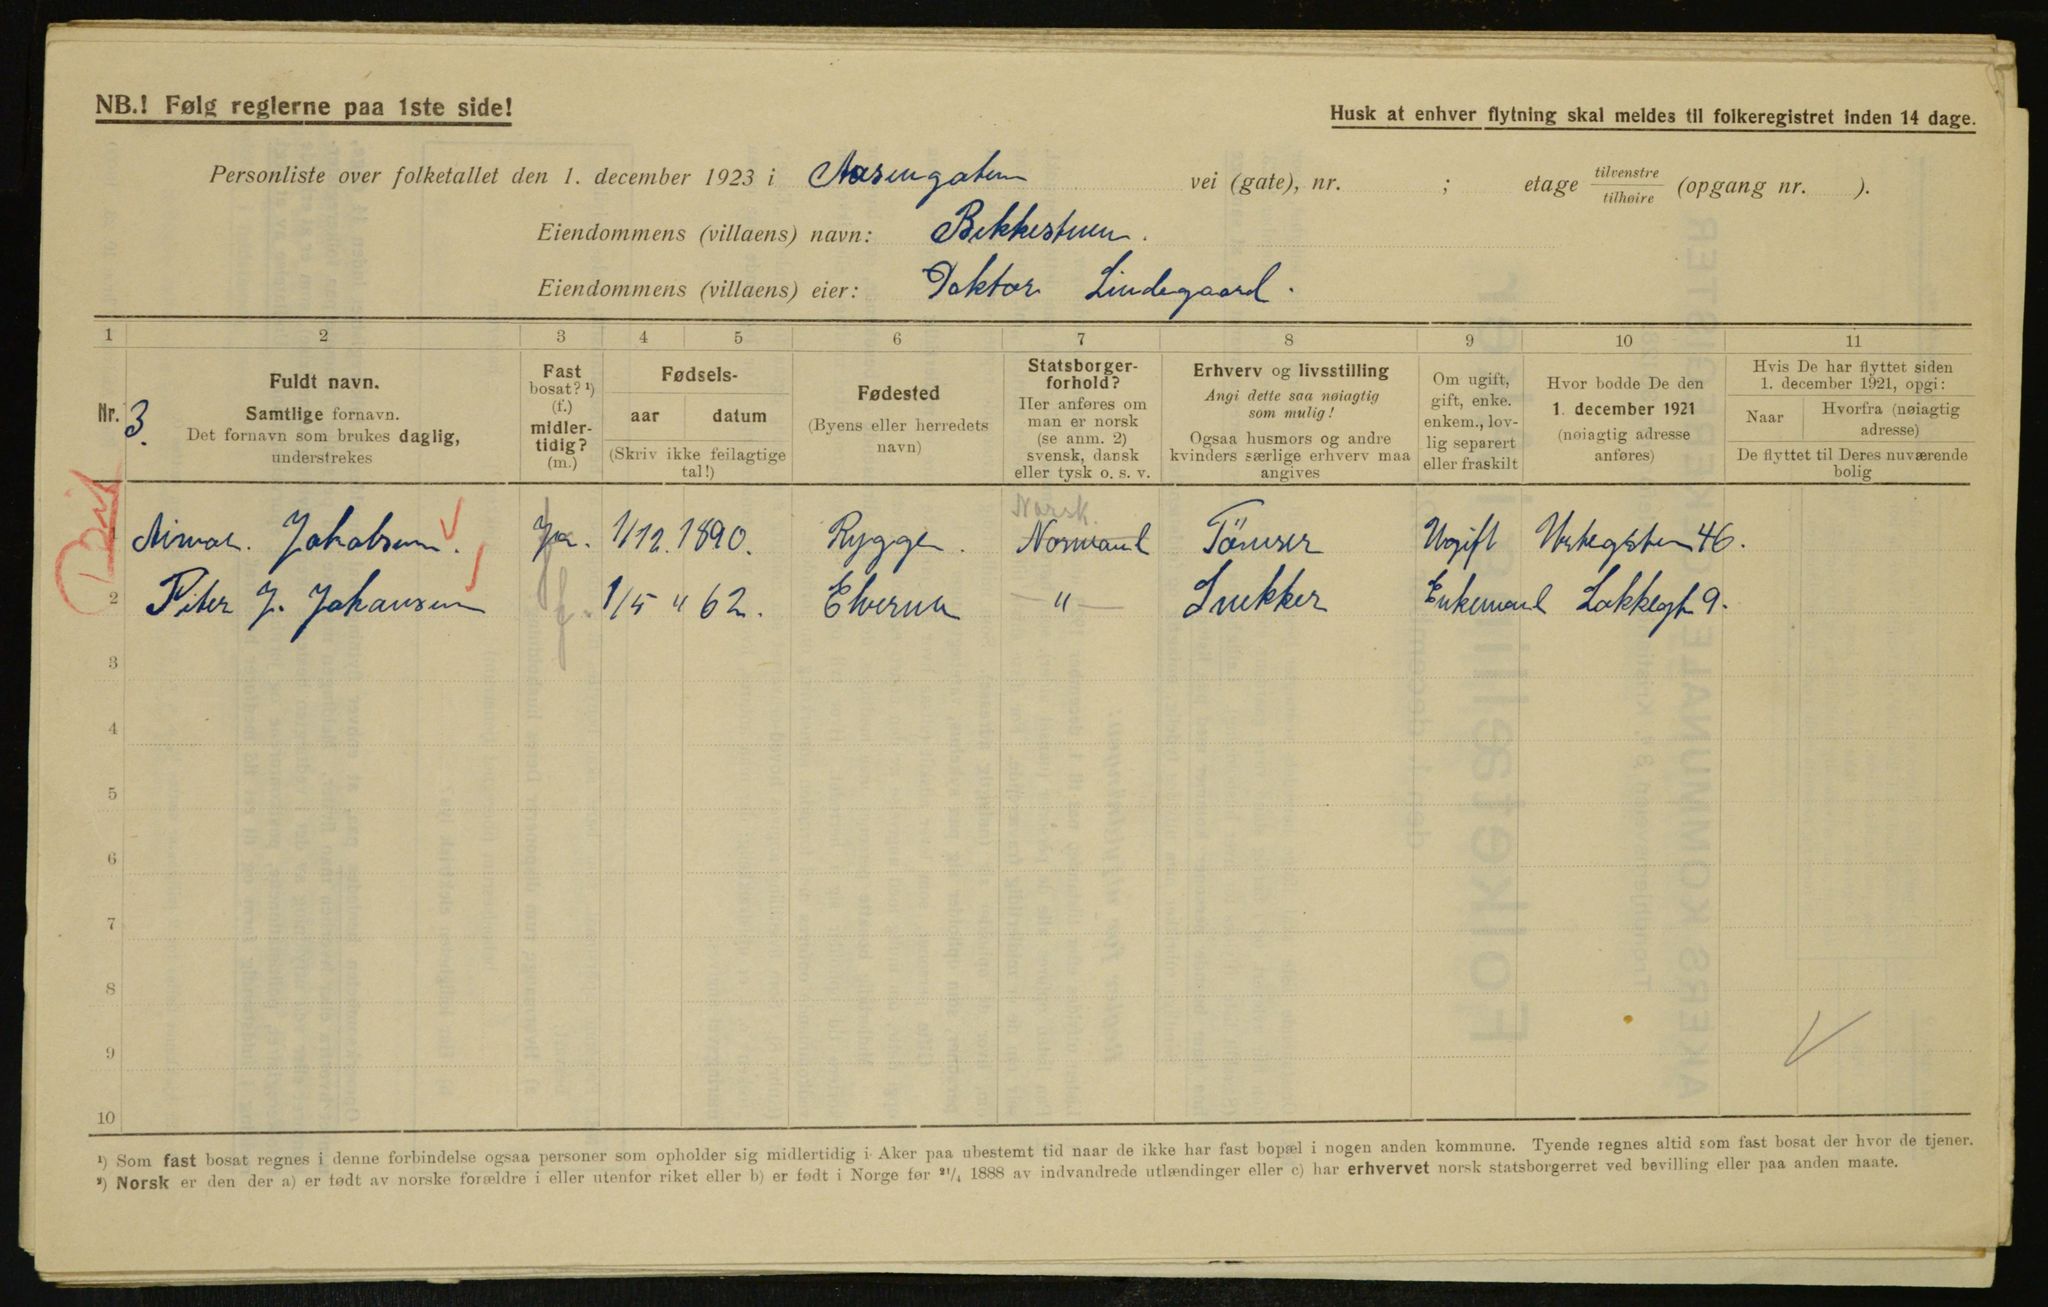 NB.! Følg reglerne paa 1ste side!
Husk at enhver flytning skal meldes til folkeregistret inden 14 dage.
Personliste over folketallet den 1. december 1923 i Aasengaten vei (gate), nr. ; etage tilvenstre / tilhøire (opgang nr. ).
Eiendommens (villaens) navn: Bekkestuen.
Eiendommens (villaens) eier: Doktor Lindegaard.
1 2 3 4 5 6 7 8 9 10 11
Nr. 3.
Fuldt navn.
Samtlige fornavn.
Det fornavn som brukes daglig,
understrekes
Fast
bosat? ¹)
(f.)
midler-
tidig?
(m.)
Fødsels-
aar datum
(Skriv ikke feilagtige
tal!)
Fødested
(Byens eller herredets
navn)
Statsborger-
forhold?
Her anføres om
man er norsk
(se anm. 2)
svensk, dansk
eller tysk o. s. v.
Erhverv og livsstilling
Angi dette saa nøiagtig
som mulig!
Ogsaa husmors og andre
kvinders særlige erhverv maa
angives
Om ugift,
gift, enke.
enkem., lov-
lig separert
eller fraskilt
Hvor bodde De den
1. december 1921
(nøiagtig adresse
anføres)
Hvis De har flyttet siden
1. december 1921, opgi:
Naar
Hvorfra (nøiagtig
adresse)
De flyttet til Deres nuværende
bolig
Norsk.
1 Jakobsen. Ja. 1/12. 1890. Rygge. Normand Tömrer Ugift 46.
2 Peter J. Johansen f. 1/5 " 62. Elverum — " — Snekker Enkemand Lakkegt 9.
3
4
5
6
7
8
9
10
¹) Som fast bosat regnes i denne forbindelse ogsaa personer som opholder sig midlertidig i Aker paa ubestemt tid naar de ikke har fast bopæl i nogen anden kommune. Tyende regnes altid som fast bosat der hvor de tjener.
²) Norsk er den der a) er født av norske forældre i eller utenfor riket eller b) er født i Norge før 21/4 1888 av indvandrede utlændinger eller c) har erhvervet norsk statsborgerret ved bevilling eller paa anden maate.